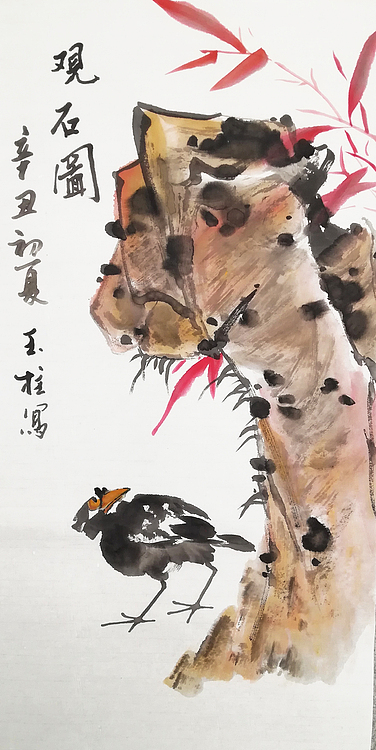 观石圖
辛丑初夏
玉柱写